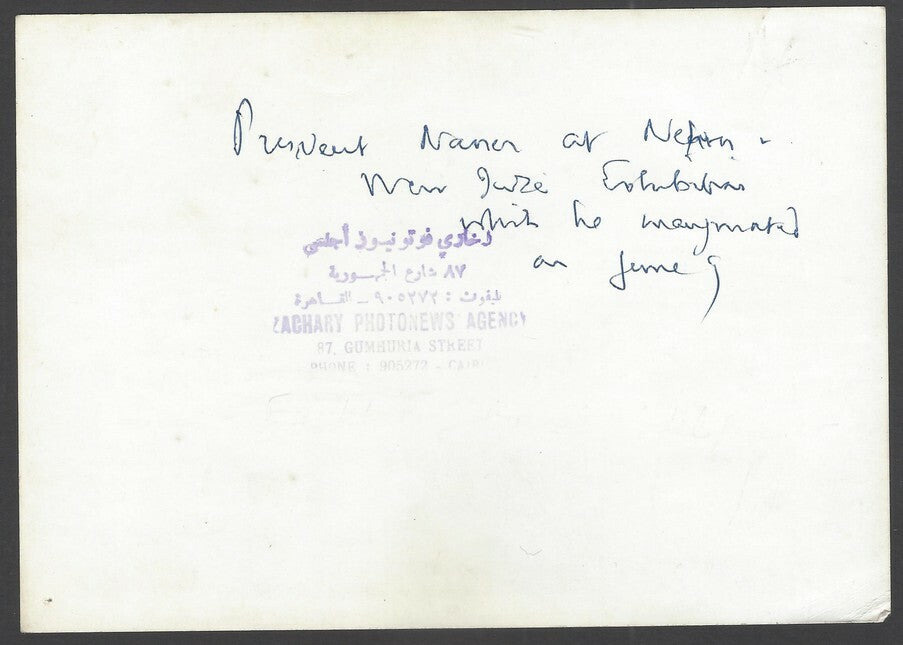 President Nasser at
Exhibition
which he inaugurated
on June 9
زخاري فوتو نيوز أجنسي
٨٧ شارع الجمهورية
تليفون : ٩٠٥٢٧٢ - القاهرة
ZACHARY PHOTONEWS AGENCY
87, GUMHURIA STREET
PHONE : 905272 - CAIRO